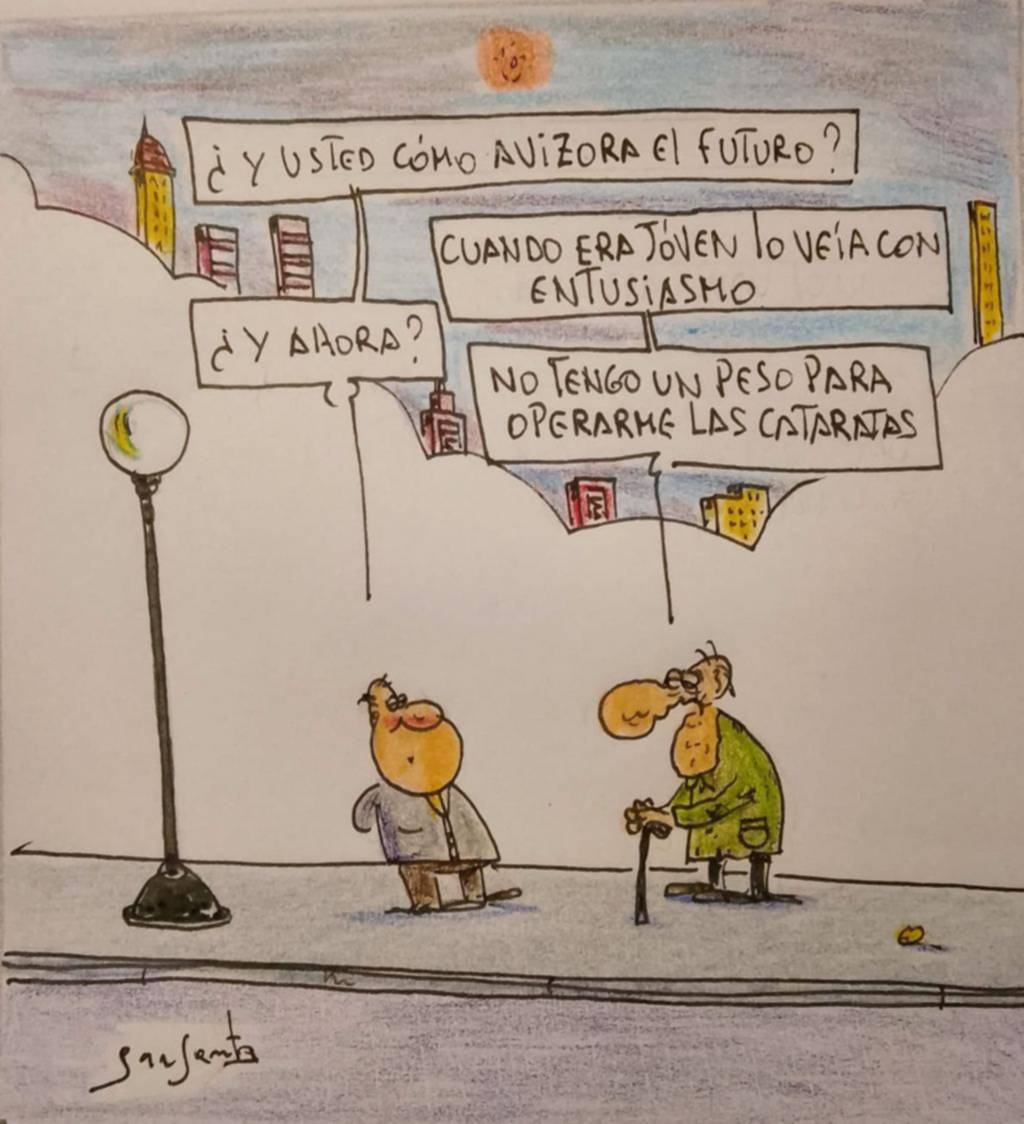 ¿Y USTED CÓMO AVIZORA El FUTURO?
CUANDO ERA JÓVEN lO VEÍA CON
ENTUSIASMO
¿Y AHORA?
NO TENGO UN PESO PARA
OPERARME LAS CATARATAS